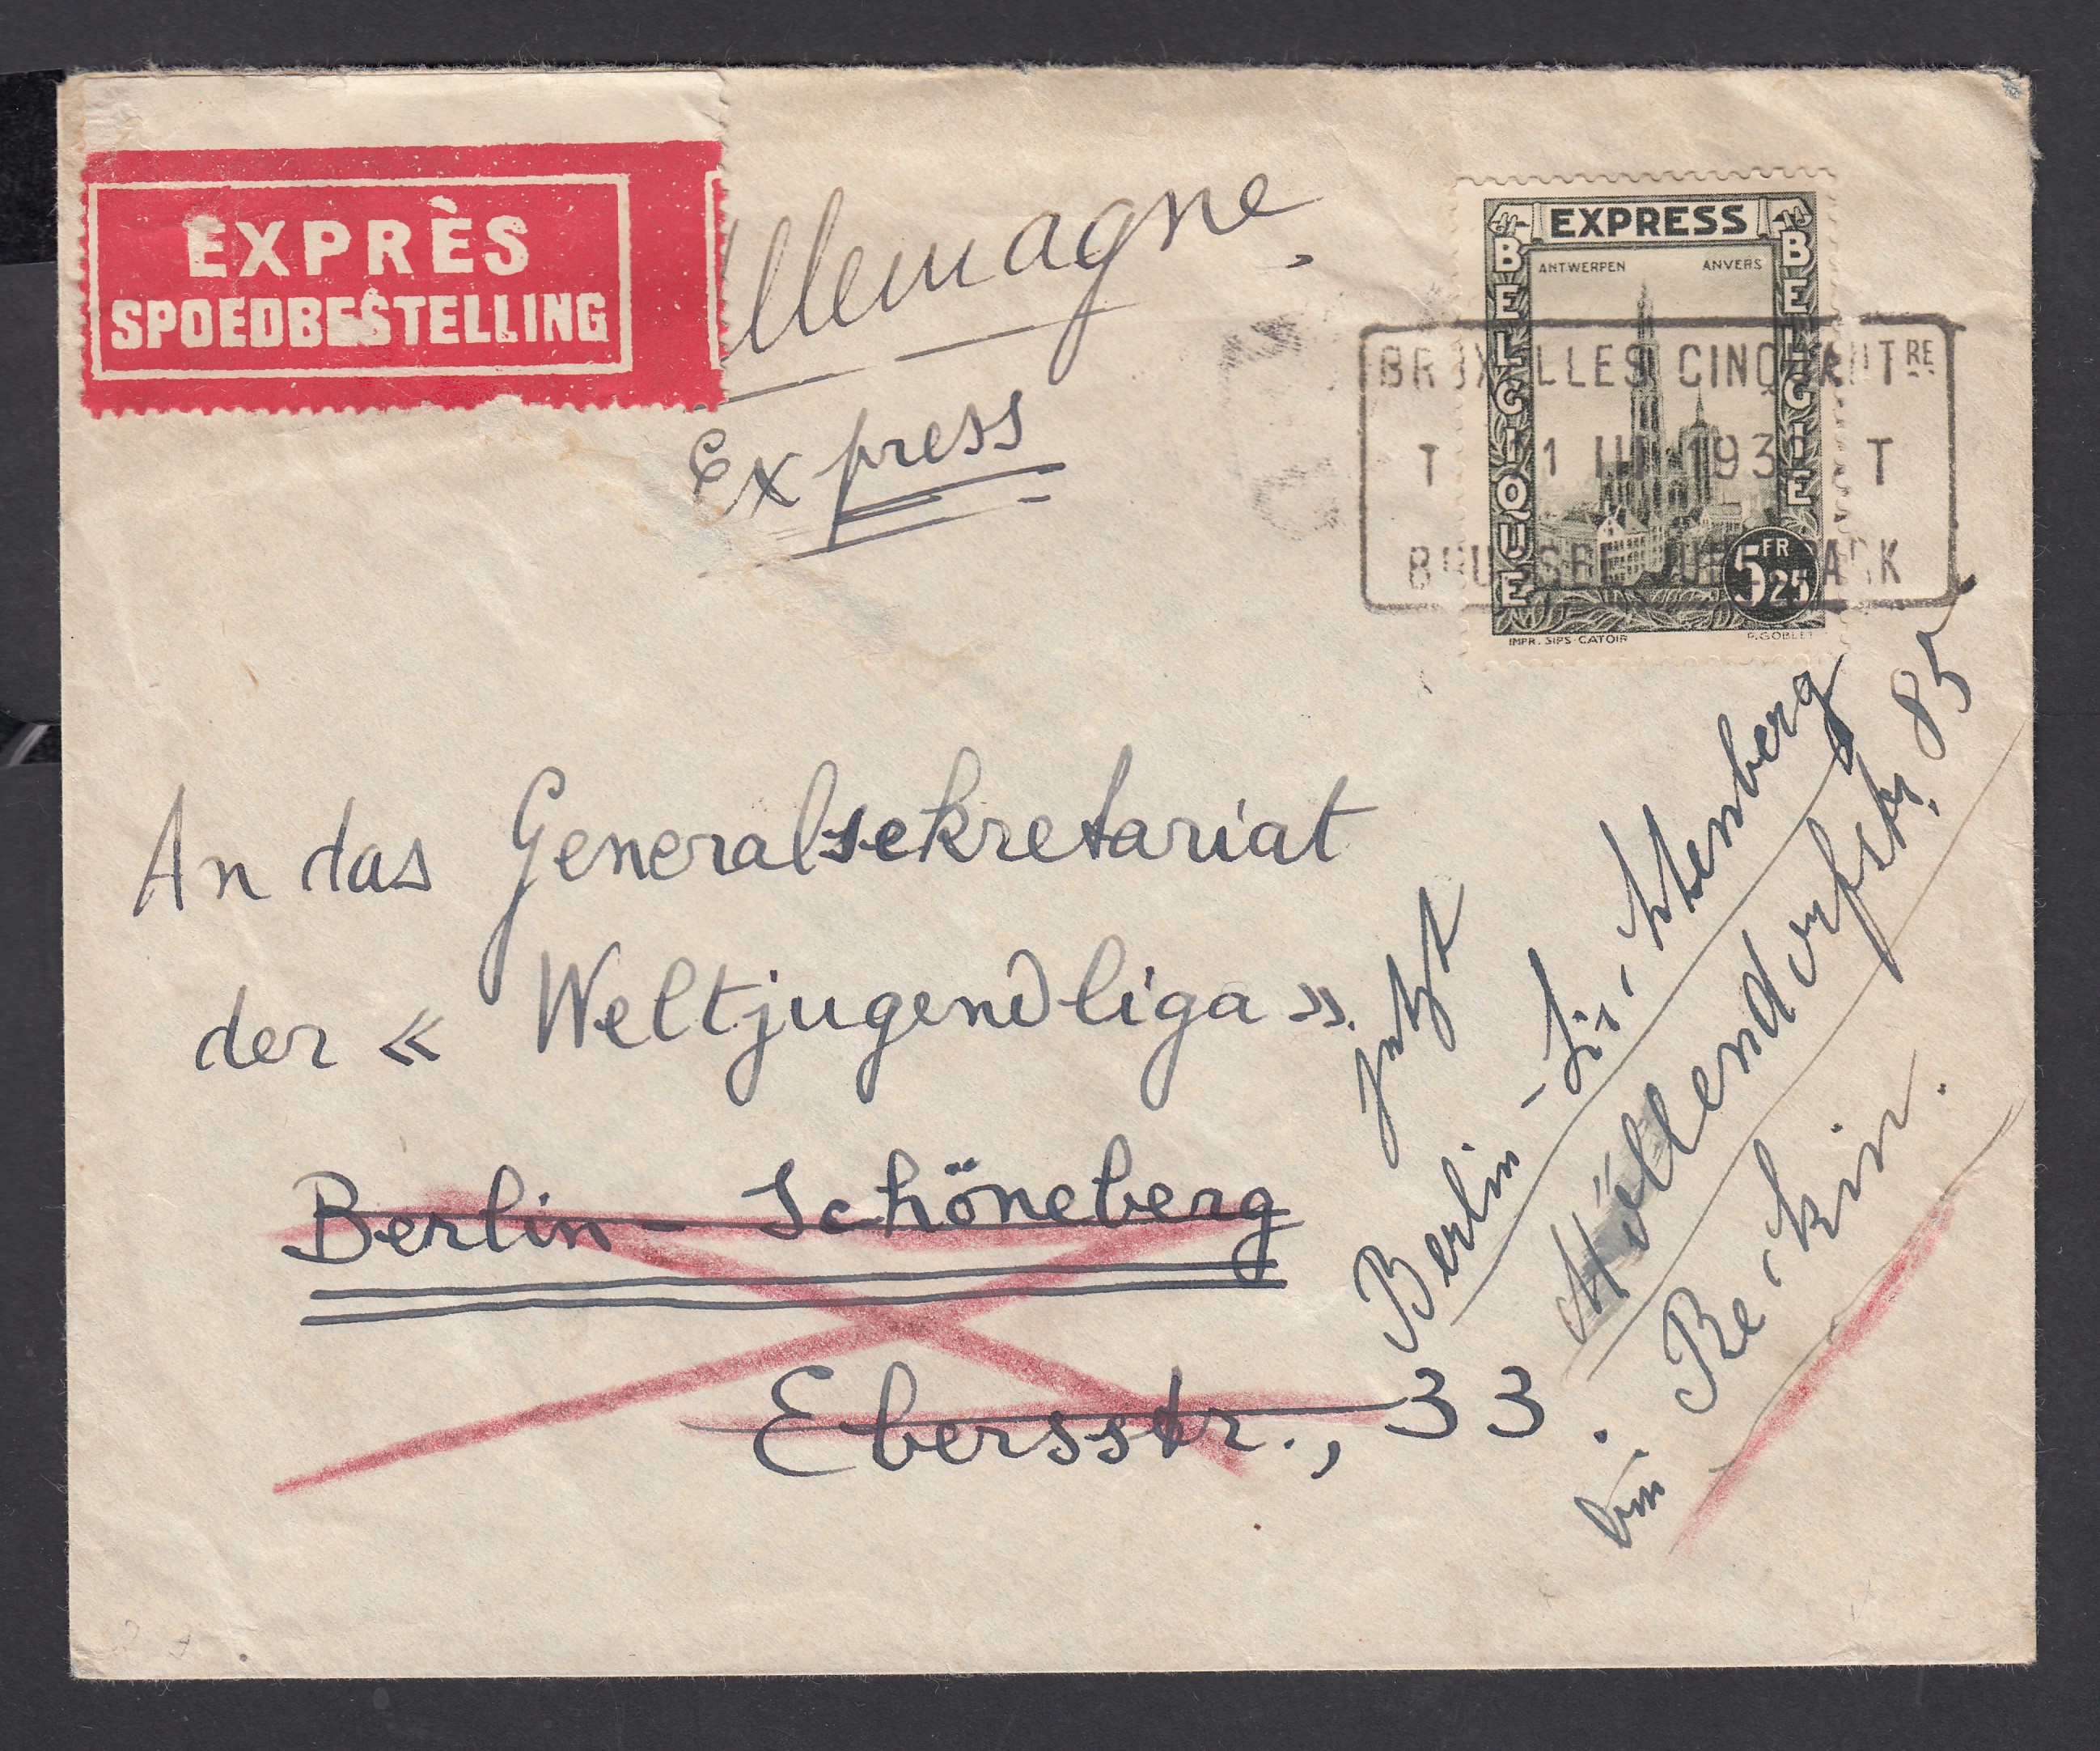 EXPRÈS
SPOEDBESTELLING
Allemagne,
Express
EXPRESS
ANTWERPEN ANVERS
BELGIQUE
BELGIË
5 FR 25
IMPR. SIPS-CATOIR R. GOBLET
BRUXELLES CINQUANTRE
T 1 193 T
BRUSSEL JUBELPARK
An das Generalsekretariat
der « Weltjugendliga ».
Berlin - Schöneberg
Ebersstr., 33.
jetzt
Berlin - Lichtenberg
Möllendorfstr. 85
bei Reckin.